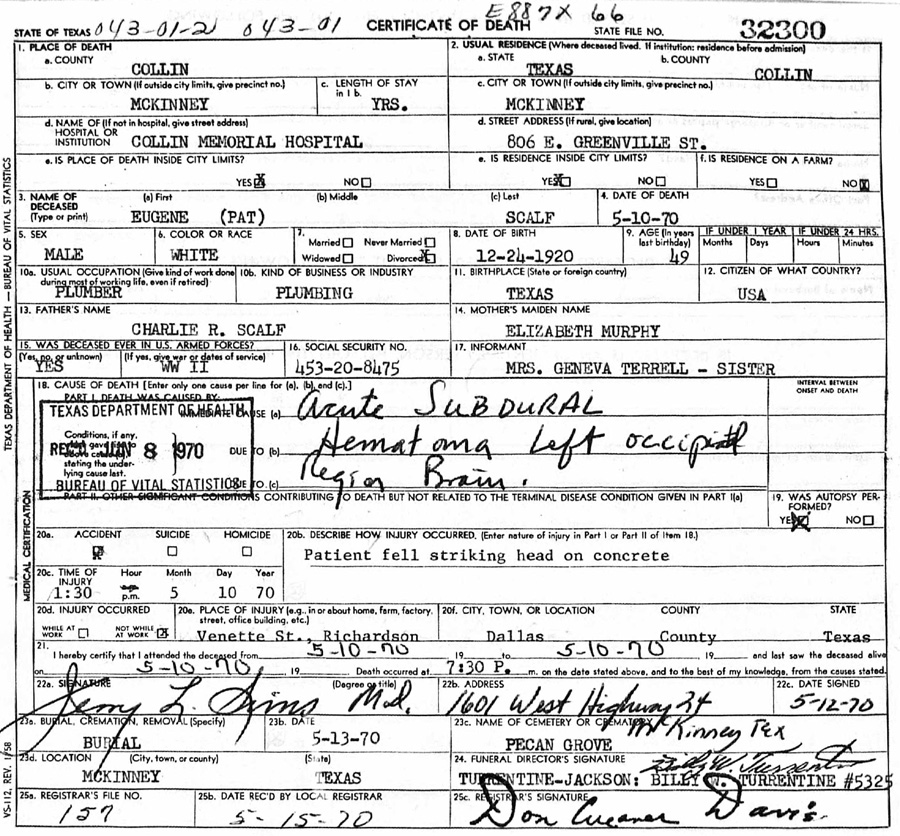 E887X 66
STATE OF TEXAS 043-01-2 043-01 CERTIFICATE OF DEATH STATE FILE NO. 32300
1. PLACE OF DEATH 2. USUAL RESIDENCE (Where deceased lived. If institution: residence before admission)
a. COUNTY COLLIN a. STATE TEXAS b. COUNTY COLLIN
b. CITY OR TOWN (If outside city limits, give precinct no.) c. LENGTH OF STAY in 1 b. c. CITY OR TOWN (If outside city limits, give precinct no.)
MCKINNEY YRS. MCKINNEY
d. NAME OF (If not in hospital, give street address) HOSPITAL OR INSTITUTION d. STREET ADDRESS (If rural, give location)
COLLIN MEMORIAL HOSPITAL 806 E. GREENVILLE ST.
e. IS PLACE OF DEATH INSIDE CITY LIMITS? e. IS RESIDENCE INSIDE CITY LIMITS? f. IS RESIDENCE ON A FARM?
YES X NO YES X NO YES NO X
3. NAME OF DECEASED (Type or print) (a) First (b) Middle (c) Last 4. DATE OF DEATH
EUGENE (PAT) SCALF 5-10-70
5. SEX 6. COLOR OR RACE 7. Married Never Married 8. DATE OF BIRTH 9. AGE (In years last birthday) IF UNDER 1 YEAR IF UNDER 24 HRS.
Months Days Hours Minutes
MALE WHITE Widowed Divorced X 12-24-1920 49
10a. USUAL OCCUPATION (Give kind of work done during most of working life, even if retired) 10b. KIND OF BUSINESS OR INDUSTRY 11. BIRTHPLACE (State or foreign country) 12. CITIZEN OF WHAT COUNTRY?
PLUMBER PLUMBING TEXAS USA
13. FATHER'S NAME 14. MOTHER'S MAIDEN NAME
CHARLIE R. SCALF ELIZABETH MURPHY
15. WAS DECEASED EVER IN U.S. ARMED FORCES? 16. SOCIAL SECURITY NO. 17. INFORMANT
(Yes, no, or unknown) (If yes, give war or dates of service)
YES WW II 453-20-8475 MRS. GENEVA TERRELL - SISTER
18. CAUSE OF DEATH [Enter only one cause per line for (a), (b), and (c).] INTERVAL BETWEEN ONSET AND DEATH
PART I. DEATH WAS CAUSED BY:
TEXAS DEPARTMENT OF HEALTH IMMEDIATE CAUSE (a) Acute SUBDURAL
Conditions, if any, which gave rise to above cause (a), stating the underlying cause last.
REC'D JUN 8 1970 DUE TO (b) Hematoma Left occipital
BUREAU OF VITAL STATISTICS DUE TO (c) Region Brain.
PART II. OTHER SIGNIFICANT CONDITIONS CONTRIBUTING TO DEATH BUT NOT RELATED TO THE TERMINAL DISEASE CONDITION GIVEN IN PART I(a) 19. WAS AUTOPSY PERFORMED?
YES X NO
20a. ACCIDENT SUICIDE HOMICIDE 20b. DESCRIBE HOW INJURY OCCURRED. (Enter nature of injury in Part I or Part II of Item 18.)
X Patient fell striking head on concrete
20c. TIME OF INJURY Hour Month Day Year
1:30 p.m. 5 10 70
20d. INJURY OCCURRED 20e. PLACE OF INJURY (e.g., in or about home, farm, factory, street, office building, etc.) 20f. CITY, TOWN, OR LOCATION COUNTY STATE
WHILE AT WORK NOT WHILE AT WORK X Venette St., Richardson Dallas County Texas
21. I hereby certify that I attended the deceased from 5-10-70 19 to 5-10-70 19 and last saw the deceased alive
on 5-10-70 19 Death occurred at 7:30 P. m. on the date stated above, and to the best of my knowledge, from the causes stated.
22a. SIGNATURE (Degree or title) 22b. ADDRESS 22c. DATE SIGNED
Jerry L. Sims M.D. 1601 West Highway 24 5-12-70
McKinney Tex
23a. BURIAL, CREMATION, REMOVAL (Specify) 23b. DATE 23c. NAME OF CEMETERY OR CREMATORY
BURIAL 5-13-70 PECAN GROVE
23d. LOCATION (City, town, or county) (State) 24. FUNERAL DIRECTOR'S SIGNATURE Billy W. Turrentine
MCKINNEY TEXAS TURRENTINE-JACKSON: BILLY W. TURRENTINE #5325
25a. REGISTRAR'S FILE NO. 25b. DATE REC'D BY LOCAL REGISTRAR 25c. REGISTRAR'S SIGNATURE
157 5-15-70 Don Davis
TEXAS DEPARTMENT OF HEALTH — BUREAU OF VITAL STATISTICS
MEDICAL CERTIFICATION
VS-112, REV. 1/58